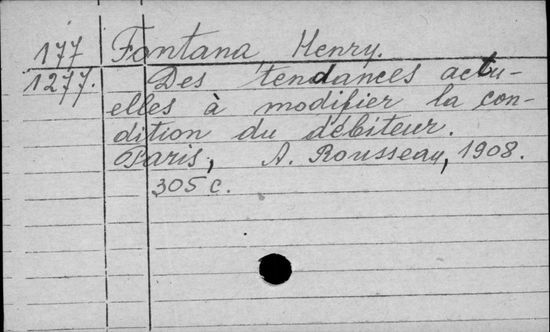 177 Fontana Henry.
1277. Des tendances actu-
elles à modifier la con-
dition du débiteur.
Paris, A. Rousseau, 1908.
305 c.